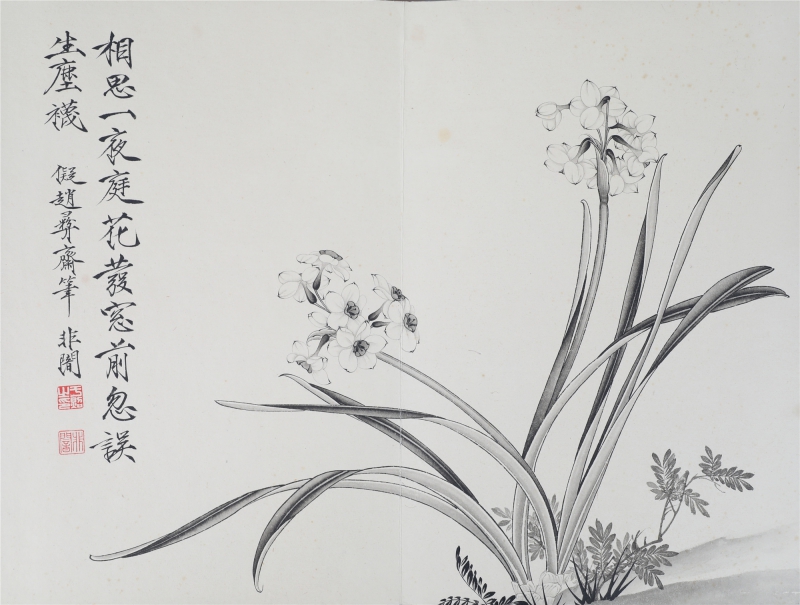 相思一夜庭花發窓前忽誤
生塵襪
儗趙彝齋筆 非闇